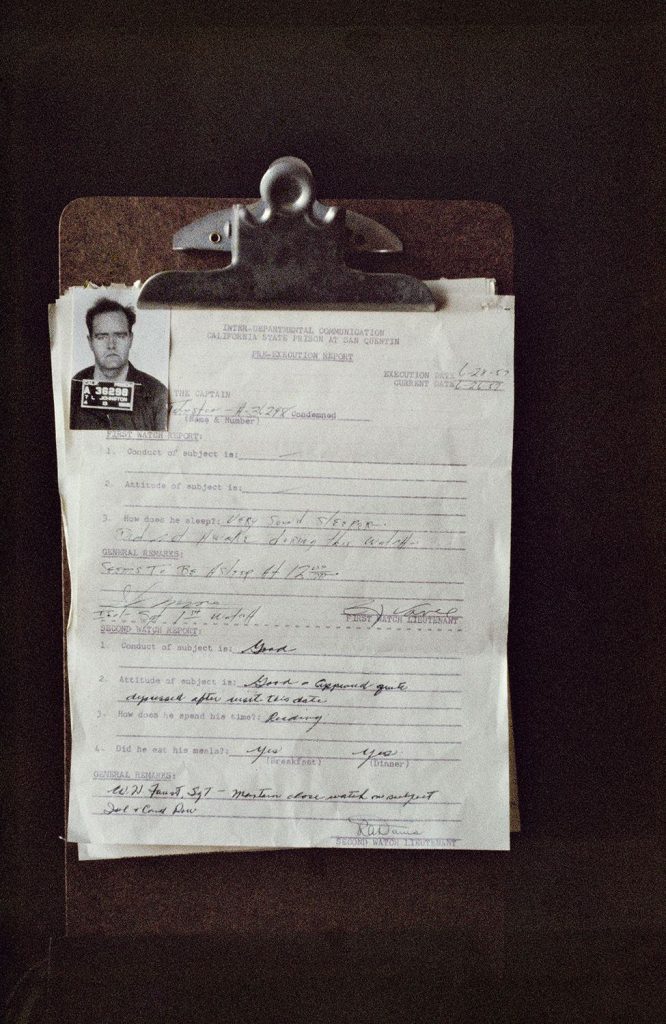 INTER-DEPARTMENTAL COMMUNICATION
CALIFORNIA STATE PRISON AT SAN QUENTIN
PRE-EXECUTION REPORT
EXECUTION DATE
CURRENT DATE
CALIF PRISON
A 36298
JOHNSTON
THE CAPTAIN
Johnston - A-36298 Condemned
(Name & Number)
FIRST WATCH REPORT:
1. Conduct of subject is:
2. Attitude of subject is:
3. How does he sleep? Very Sound Sleeper
Did not Awake during this watch
GENERAL REMARKS:
Seems To Be Asleep At 12
Sgt 1st Watch
FIRST WATCH LIEUTENANT
SECOND WATCH REPORT:
1. Conduct of subject is: Good
2. Attitude of subject is: Good - Appeared quite
depressed after visit this date
3. How does he spend his time?: Reading
4. Did he eat his meals?: Yes Yes
(Breakfast) (Dinner)
GENERAL REMARKS:
Sgt - close watch on subject
SECOND WATCH LIEUTENANT